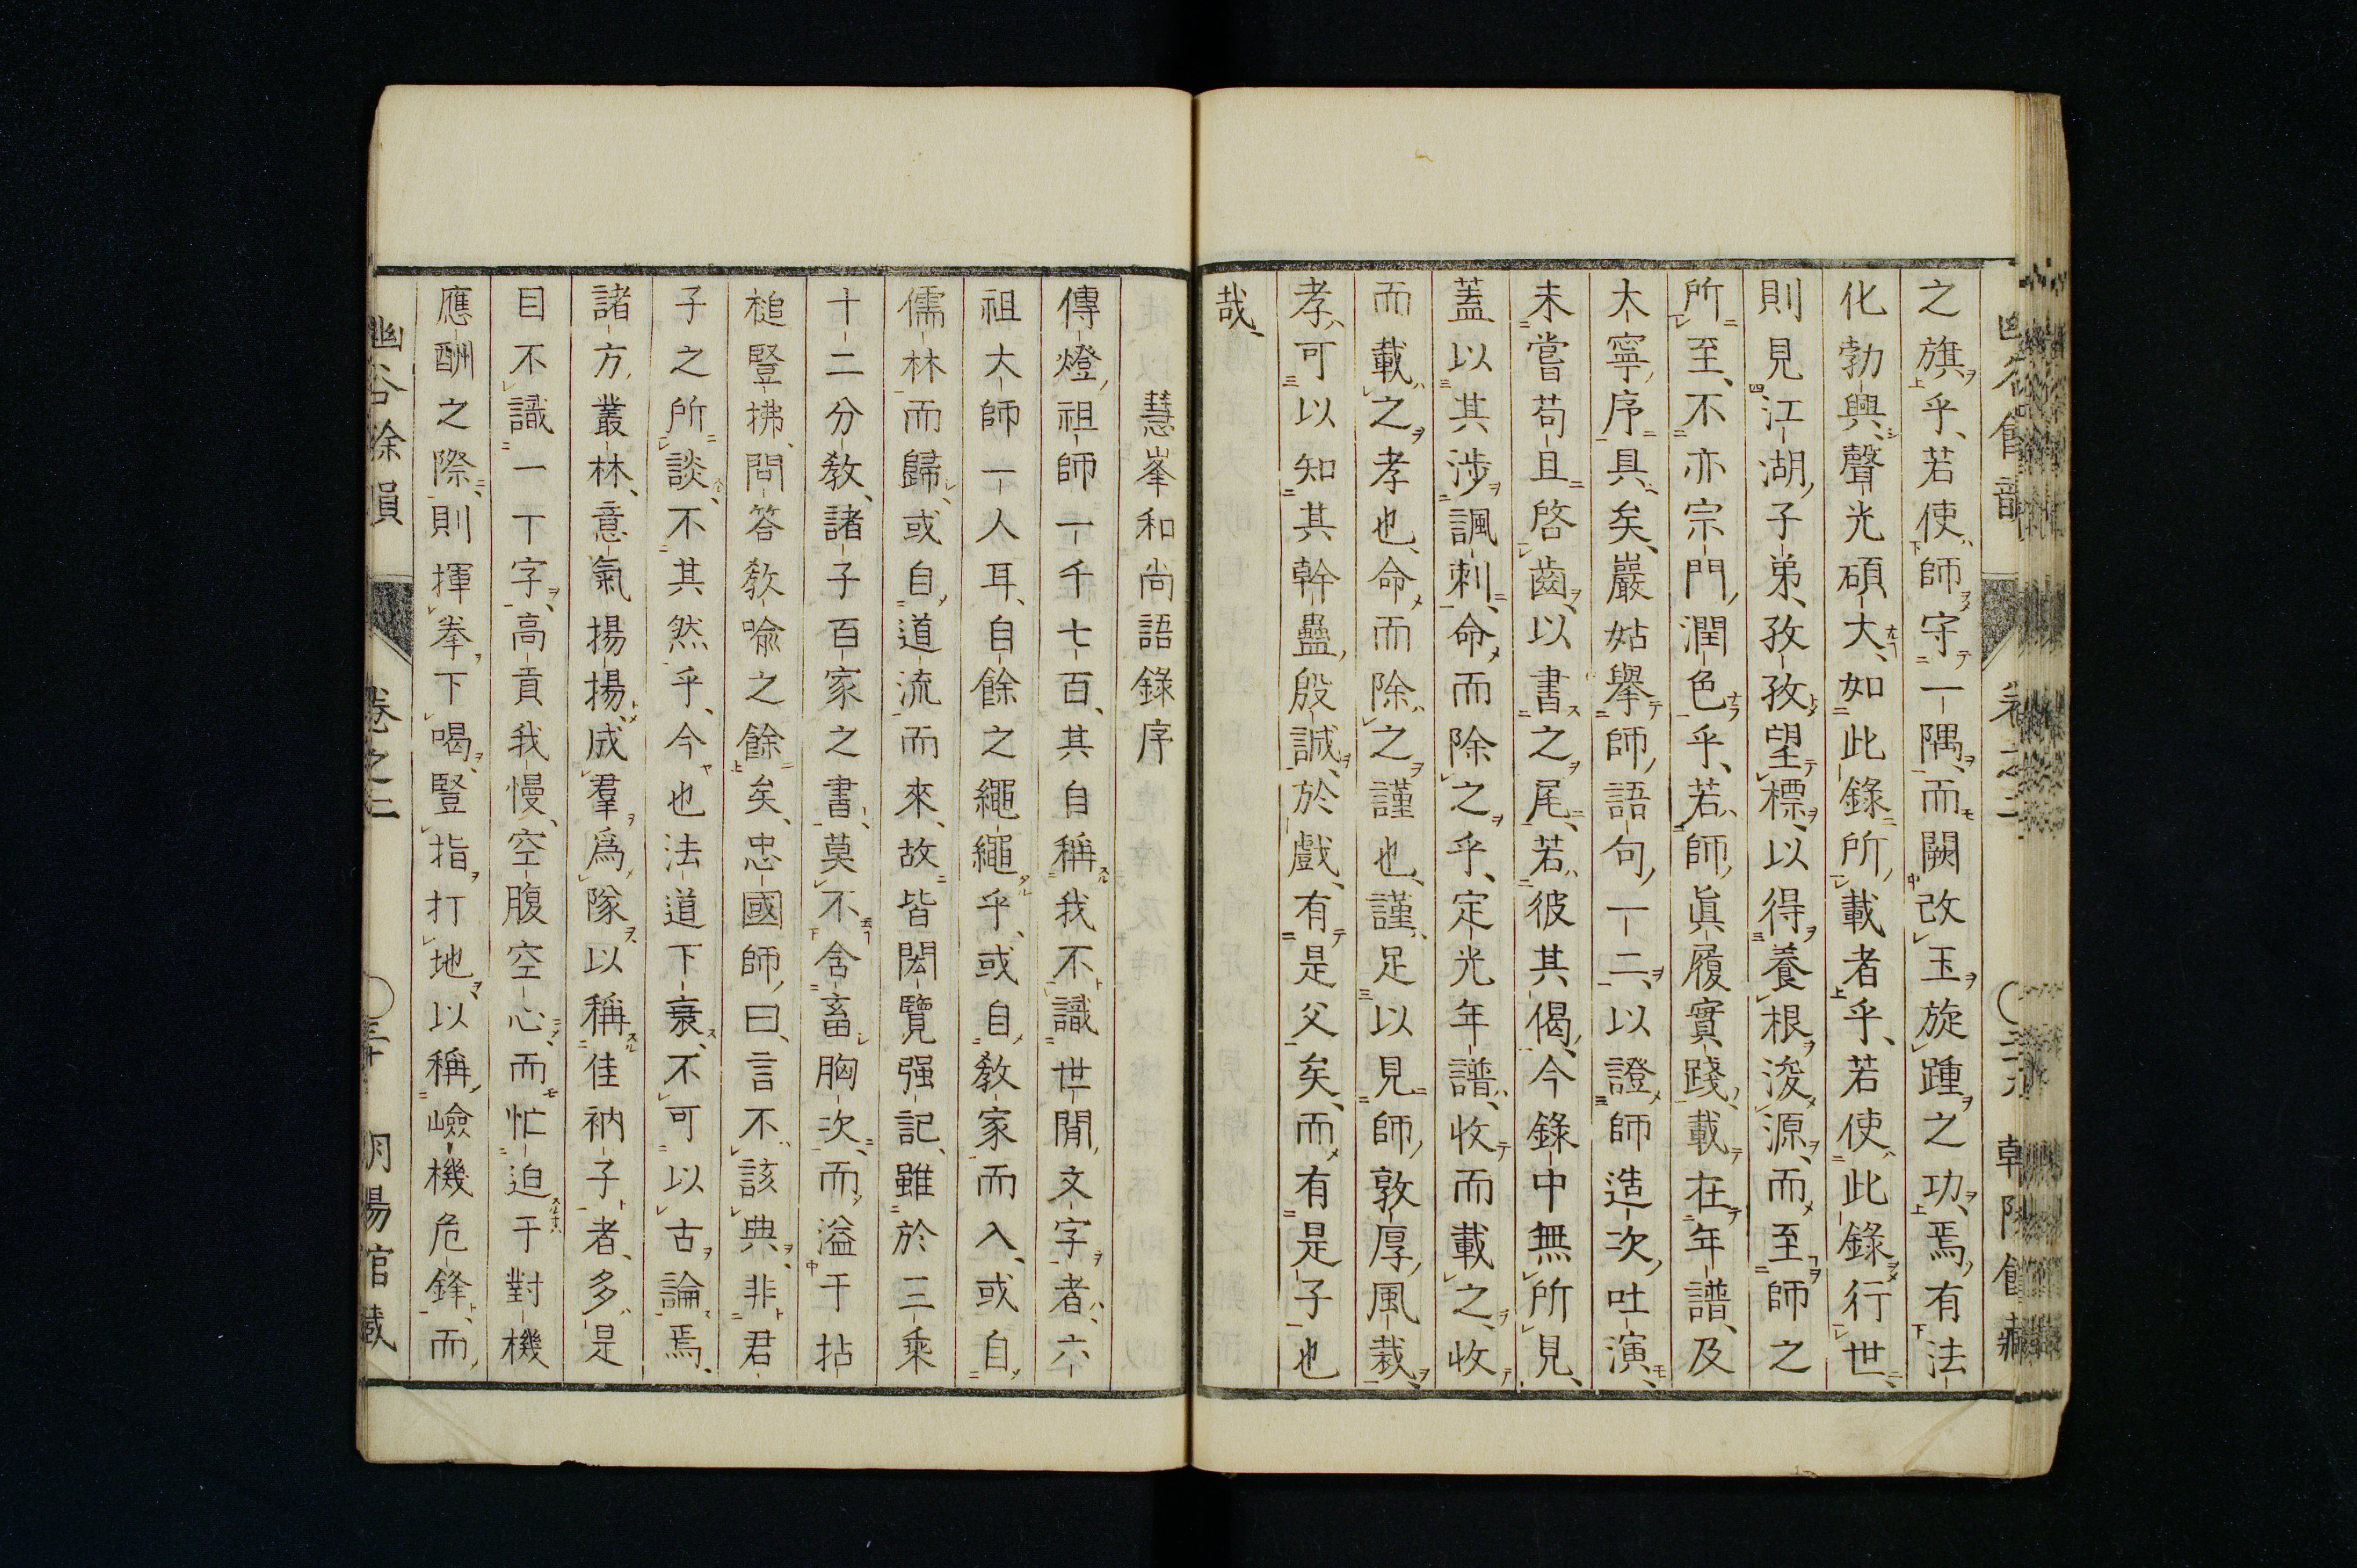 之旗乎、若使師守一隅、而闕改玉旋踵之功焉、有法
化勃興、聲光碩大、如此錄所載者乎、若使此錄行世、
則見江湖子弟、孜孜望標、以得養根浚源、而至師之
所至、不亦宗門潤色乎、若師眞履實踐、載在年譜、及
大寧序具矣、嚴姑擧師語句一二、以證師造次吐演、
未嘗苟且啓齒、以書之尾、若彼其偈、今錄中無所見、
蓋以其涉諷刺、命而除之乎、定光年譜、收而載之、收
而載之孝也、命而除之謹也、謹足以見師敦厚風裁、
孝、可以知其幹蠱殷誠、於戲、有是父矣、而有是子也
哉、
慧峯和尚語錄序
傳燈祖師一千七百、其自稱我不識世間文字者、六
祖大師一人耳、自餘之繩繩乎、或自敎家而入、或自
儒林而歸、或自道流而來、故皆閎覽强記、雖於三乘
十二分敎、諸子百家之書、莫不含畜胸次、而溢于拈
槌豎拂、問答敎喩之餘矣、忠國師曰、言不該典、非君
子之所談、不其然乎、今也法道下衰、不可以古論焉、
諸方叢林、意氣揚揚、成羣爲隊、以稱佳衲子者、多是
目不識一丁字、高貢我慢、空腹空心、而忙迫于對機
應酬之際、則揮拳下喝、豎指打地、以稱嶮機危鋒、而
幽谷餘韻 卷之二 三十 朝陽館藏